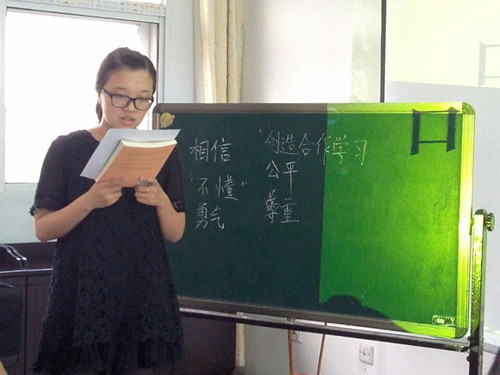 相信
"不懂"
勇气
"创造合作学习
公平
尊重